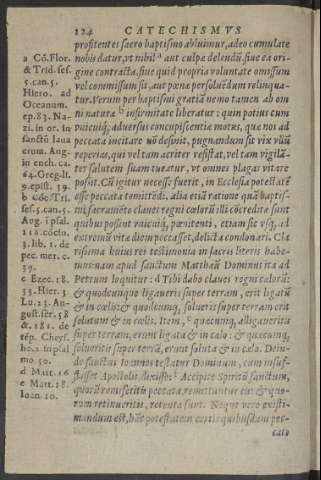 124 CATECHISMVS
profitentes sacro baptismo abluimur, adeo cumulate
nobis datur, vt nihil ᵃ aut culpæ delendū, siue ea ori-
gine contracta, siue quid propria voluntate omissum
vel commissum sit, aut pœnæ persoluēdum relinqua-
tur. Verum per baptismi gratiā nemo tamen ab om
ni naturæ ᵇ infirmitate liberatur: quin potius cum
vnicuiq; aduersus concupiscentiæ motus, quæ nos ad
peccata incitare nō desinit, pugnandum sit vix vllū
reperias, qui vel tam acriter resistat, vel tam vigilā-
ter salutem suam tueatur, vt omnes plagas vitare
possit. Cū igitur necesse fuerit, in Ecclesia potestatē
esse peccata remittēdi, alia etiā ratione quā baptis-
mi sacramēto claues regni cœlorū illi cōcredita sunt
quibus possint vnicuiq; pœnitenti, etiam si vsq; ad
extremū vitæ diem peccasset, delicta condonari. Cla
rissima huius rei testimonia in sacris literis habe-
apud sanctum Matthæū Dominus ita ad
Petrum loquitur: d Tibi dabo claues regni cœlorū:
& quodcunque ligaueris super terram, erit ligatū
& in cœlis: & quodcunq; solueris super terram erit
solutum & in cœlis. Item, ᵉ quæcunq; alligaueritis
super terram, erunt ligata & in cœlo: & quæcunq;
solueritis super terrā, erunt soluta & in cælo. Dein-
de sanctus Ioannes testatur Dominum, cum insuf-
flasset Apostolis, dixisse: Accipite Spiritū sanctum,
quorū remiseritis peccata, remittuntur eis: & quo-
rum retinueritis, retenta sunt. Neque vero existi-
mandum est, hāc potestatem certis quibusdam pec-
catis
a Cō. Flor.
& Trid. ses.
5. can. 5.
Hiero. ad
Oceanum.
ep. 83. Na-
zi. in or. in
sanctū laua
crum. Aug-
in ench. ca.
64. Greg. li.
9. epist. 39.
b Cōc. Tri.
ses. 5. can. 5.
Aug. ī psal.
118. cōcio.
3. lib. 1. de
pec. mer. c.
39.
c Ezec. 18.
33. Hier. 3
Lu. 23. Au-
gust. ser. 58
& 181. de
tēp. Chrys.
mo 50.
d Matt. 16
e Matt. 18.
Ioan. 20.